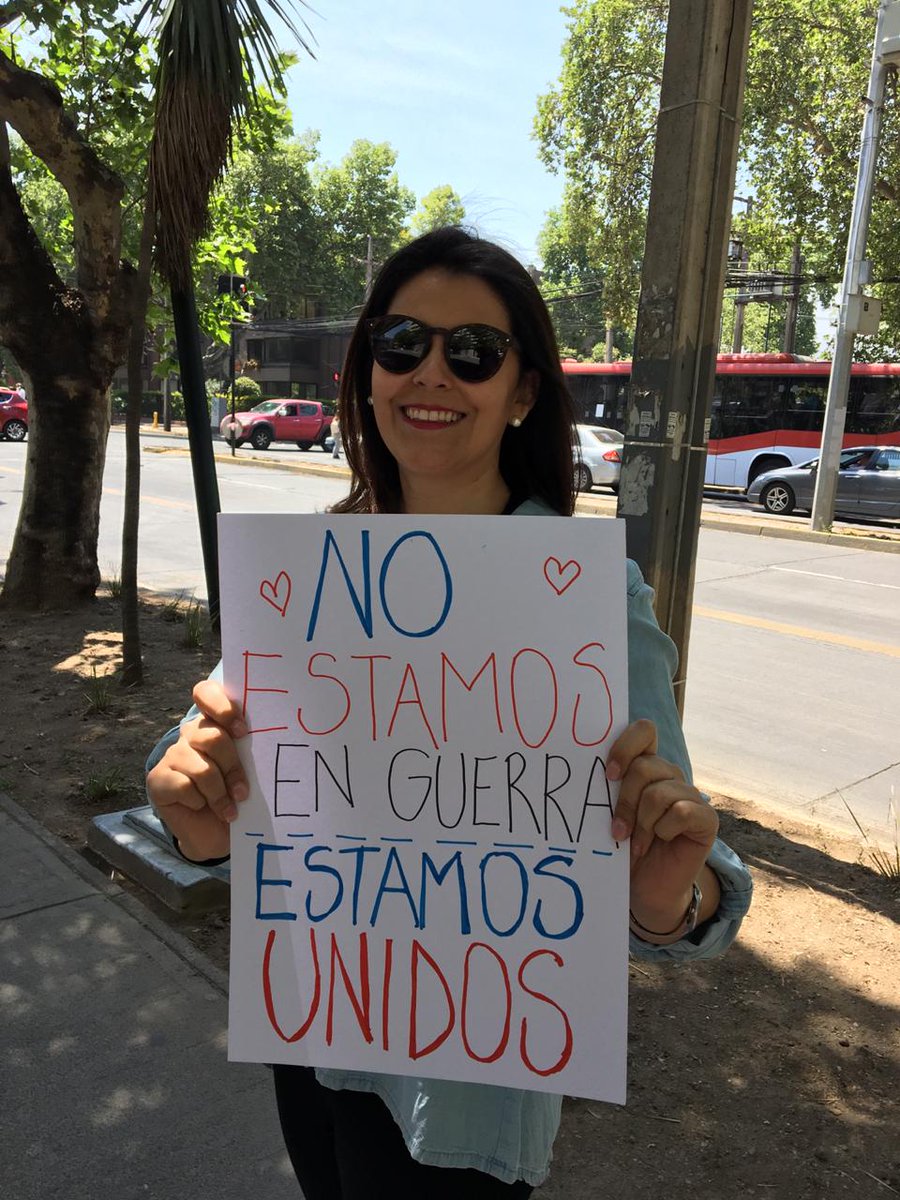 NO
ESTAMOS
EN GUERRA
ESTAMOS
UNIDOS